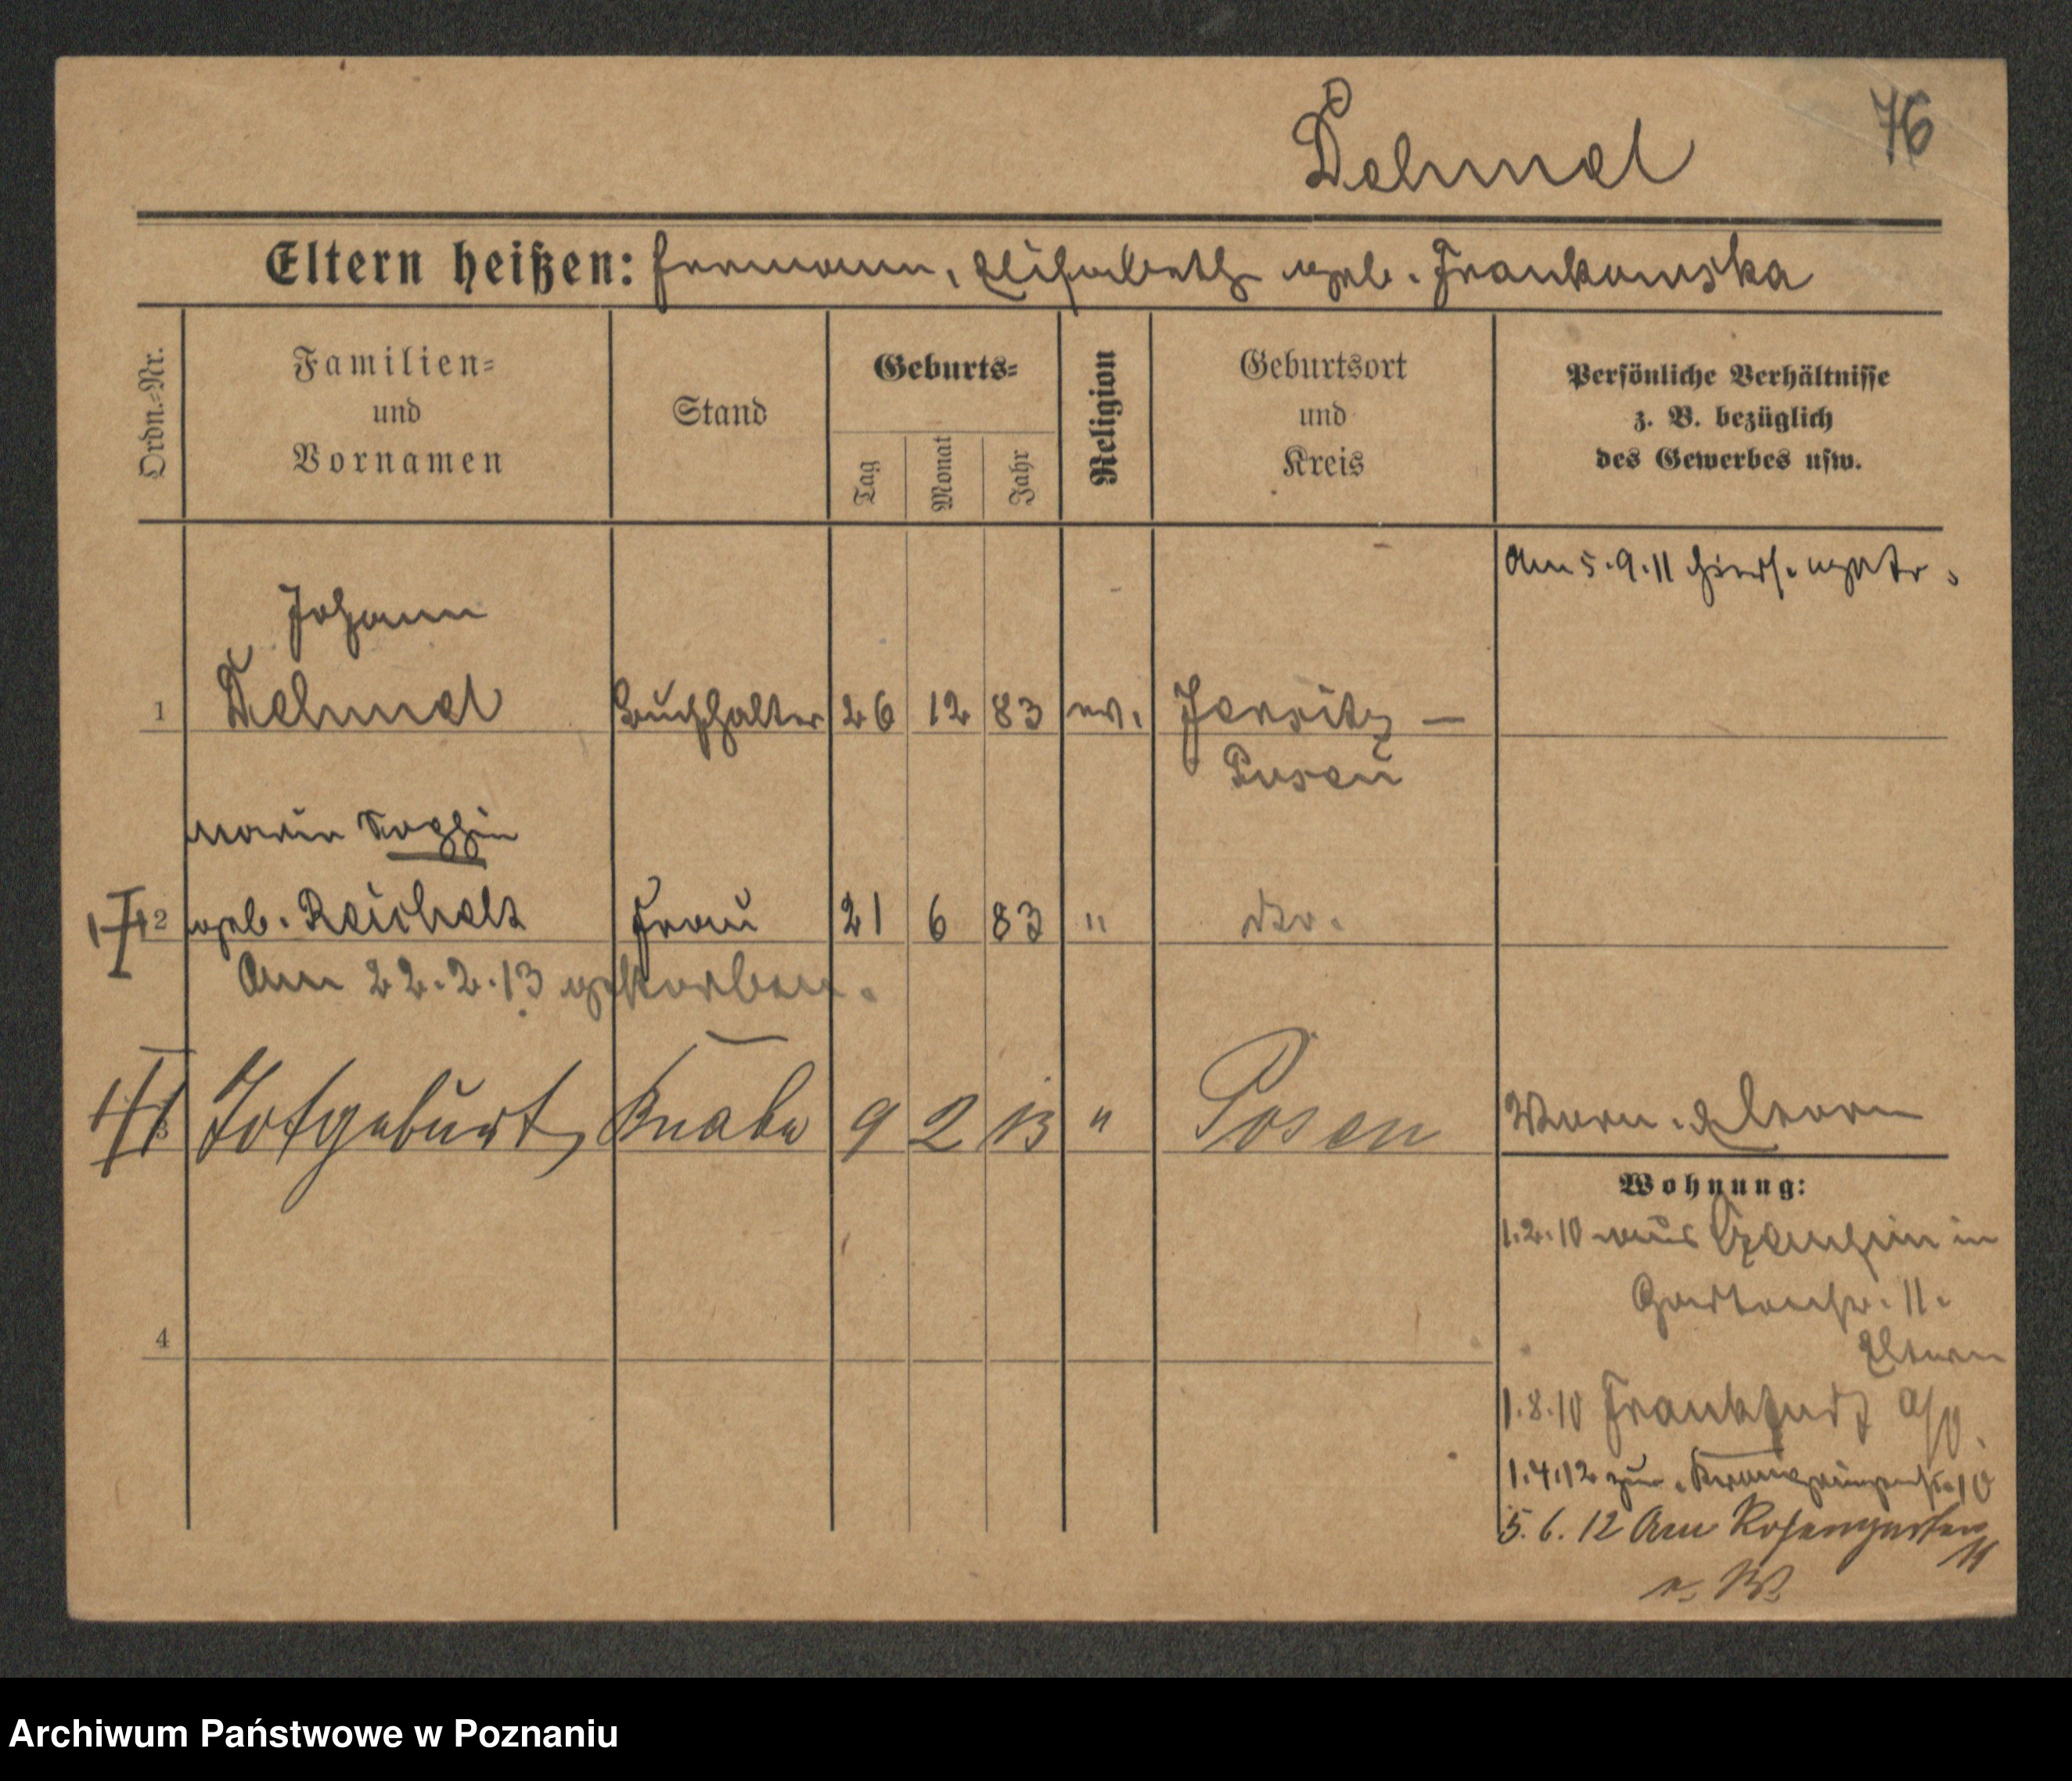 76
Dehmel
Eltern heißen: Hermann, Elisabeth geb. Frankowska
Ordn.-Nr.
Familien-
und
Vornamen
Stand
Geburts-
Tag
Monat
Jahr
Religion
Geburtsort
und
Kreis
Persönliche Verhältnisse
z. B. bezüglich
des Gewerbes usw.
Am 5.9.11 hiers. getr.
Johann
1 Dehmel Buchhalter 26 12 83 ev. Jersitz –
Posen
Marie Sophie
2 geb. Reichelt Frau 21 6 83 " dto.
Am 22.2.13 gestorben.
3 Totgeburt, Knabe 9 2 13 " Posen
Eltern
Wohnung:
1.2.10 aus in
Gartenstr. 11.
Eltern
4
1.8.10 Frankfurt a/O.
1.4.12 zur. Kronprinzenstr. 10
5.6.12 Am Rosengarten
11
Archiwum Państwowe w Poznaniu